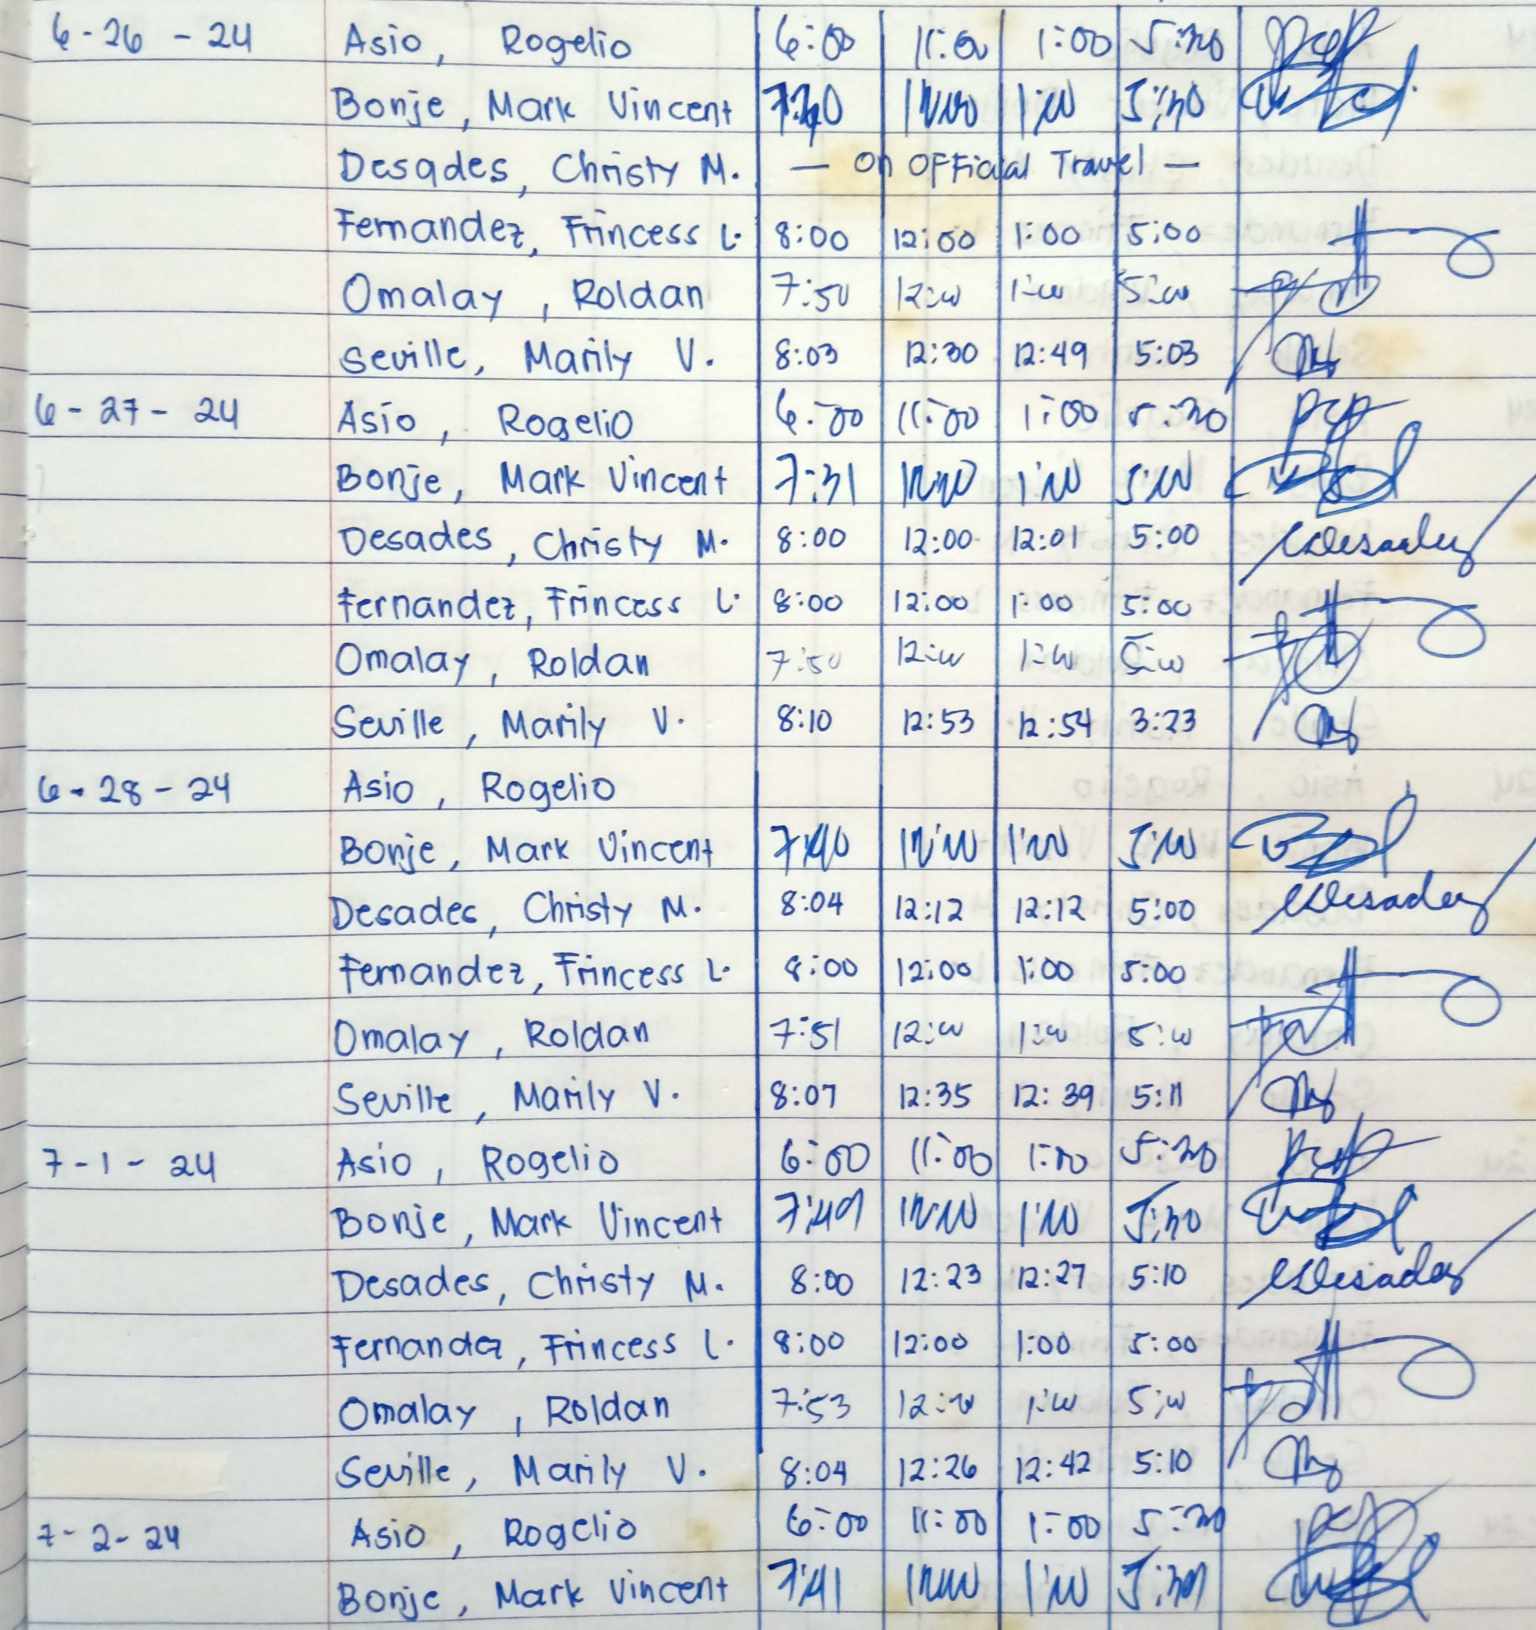 6-26-24 Asio, Rogelio 6:00 11:00 1:00 5:30
Bonje, Mark Vincent 12:00 1:00 5:30
Desades, Christy M. — On Official Travel —
Fernandez, Frincess L. 8:00 12:00 1:00 5:00
Omalay, Roldan 7:50 12:00 1:00 5:00
Seville, Marily V. 8:03 12:30 12:49 5:03
6-27-24 Asio, Rogelio 6:00 11:00 1:00 5:30
Bonje, Mark Vincent 7:31 12:00 1:00 5:00
Desades, Christy M. 8:00 12:00 12:01 5:00 CDesades
Fernandez, Frincess L. 8:00 12:00 1:00 5:00
Omalay, Roldan 7:50 12:00 1:00 5:00
Seville, Marily V. 8:10 12:53 12:54 3:23
6-28-24 Asio, Rogelio
Bonje, Mark Vincent 7:40 12:00 1:00 5:00
Desades, Christy M. 8:04 12:12 12:12 5:00 CDesades
Fernandez, Frincess L. 8:00 12:00 1:00 5:00
Omalay, Roldan 7:51 12:00 1:00 5:00
Seville, Marily V. 8:07 12:35 12:39 5:11
7-1-24 Asio, Rogelio 6:00 11:00 1:00 5:30
Bonje, Mark Vincent 7:49 12:00 1:00 5:30
Desades, Christy M. 8:00 12:23 12:27 5:10 CDesades
Fernandez, Frincess L. 8:00 12:00 1:00 5:00
Omalay, Roldan 7:53 12:00 1:00 5:00
Seville, Marily V. 8:04 12:26 12:42 5:10
7-2-24 Asio, Rogelio 6:00 11:00 1:00 5:30
Bonje, Mark Vincent 7:41 12:00 1:00